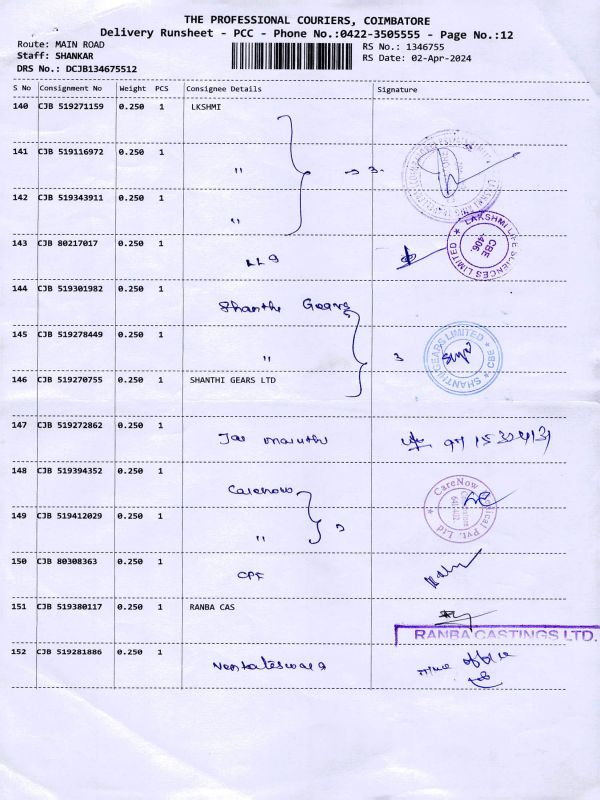 THE PROFESSIONAL COURIERS, COIMBATORE
Delivery Runsheet - PCC - Phone No.:0422-3505555 - Page No.:12
Route: MAIN ROAD
RS No.: 1346755
Staff: SHANKAR
RS Date: 02-Apr-2024
DRS No.: DCJB134675512
S No Consignment No Weight PCS Consignee Details Signature
140 CJB 519271159 0.250 1 LKSHMI
141 CJB 519116972 0.250 1 " 3
142 CJB 519343911 0.250 1 "
143 CJB 80217017 0.250 1
LAKSHMI LIFE SCIENCES LIMITED
CBE
406.
144 CJB 519301982 0.250 1 Shanthi Gears
145 CJB 519278449 0.250 1 " 3
SHANTHI GEARS LIMITED CBE
146 CJB 519270755 0.250 1 SHANTHI GEARS LTD
147 CJB 519272862 0.250 1 Jai maruthi
148 CJB 519394352 0.250 1 Carenow
CareNow Medical Pvt. Ltd
149 CJB 519412029 0.250 1 "
150 CJB 80308363 0.250 1 CPF
151 CJB 519380117 0.250 1 RANBA CAS
RANBA CASTINGS LTD.
152 CJB 519281886 0.250 1 time office